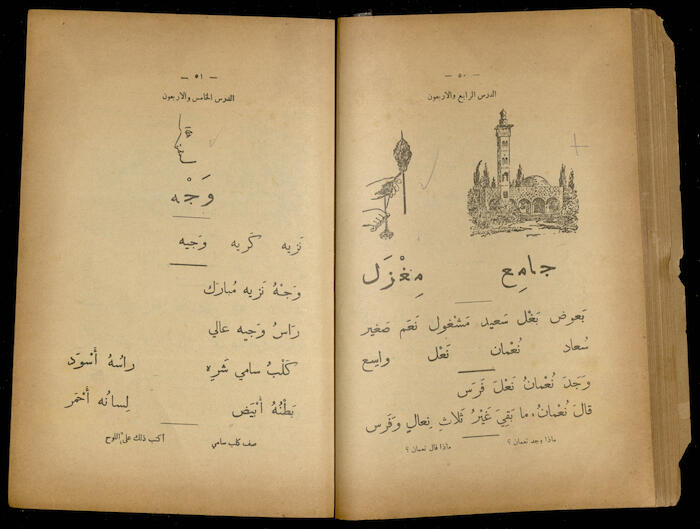 — ٥٠ —
الدرس الرابع والاربعون
جامِع مِغْزَل
بَعوض بَغْل سَعيد مَشْغول نَعَم صَغير
سُعاد نُعْمان نَعْل واسِع
وَجَدَ نُعْمانُ نَعْلَ فَرَس
قالَ نُعْمانُ، ما بَقِيَ غَيْرُ ثَلاثِ نِعالٍ وَفَرَس
ماذا وجد نعمان ؟ ماذا قال نعمان ؟
— ٥١ —
الدرس الخامس والاربعون
وَجْه
نَزيه كَريه وَجيه
وَجْهُ نَزيه مُبارَك
رَاسُ وَجيه عالي
كَلْبُ سامي شَرِه راسُهُ أَسْوَد
بَطْنُهُ أَبْيَض لِسانُه أَحْمَر
صف كلب سامي اكتب ذلك على اللوح